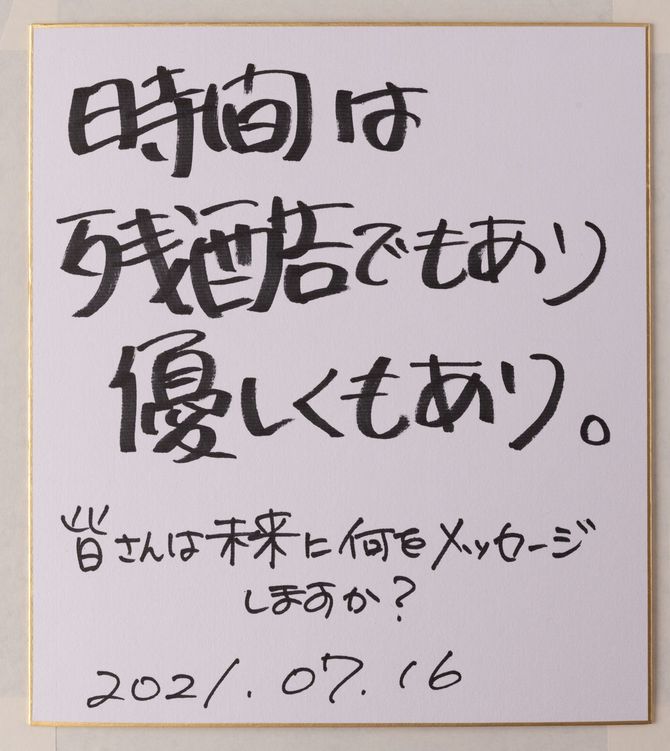 時間は
残酷でもあり
優しくもあり。
皆さんは未来に何をメッセージ
しますか?
2021.07.16